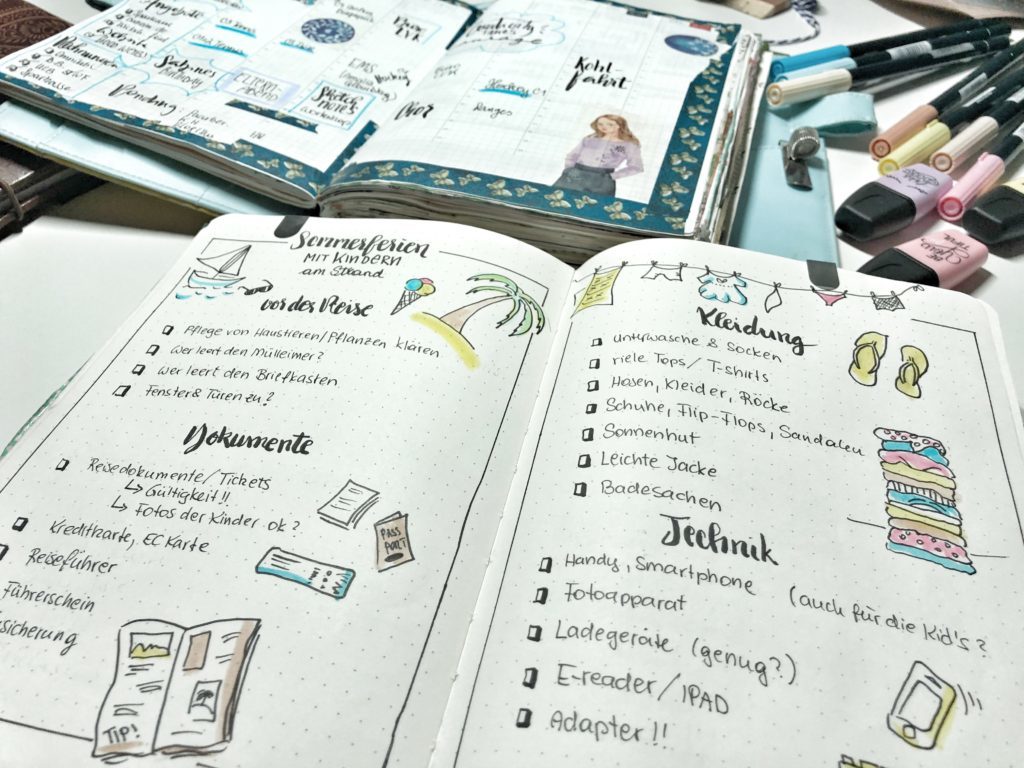 Angebote
Sabines
Birthday
Sketch
notes
EMS
Kohl-
fahrt
Sommerferien
MIT KINDERN
am Strand
vor der Reise
Pflege von Haustieren/Pflanzen klären
Wer leert den Mülleimer?
Wer leert den Briefkasten
Fenster & Türen zu?
Dokumente
Reisedokumente/Tickets
↳ Gültigkeit!!
↳ Fotos der Kinder ok?
Kreditkarte, EC Karte
Reiseführer
Führerschein
sicherung
PASS
PORT
TIP!
Kleidung
Unterwäsche & Socken
viele Tops/ T-Shirts
Hosen, Kleider, Röcke
Schuhe, Flip-Flops, Sandalen
Sonnenhut
Leichte Jacke
Badesachen
Technik
Handy, Smartphone (auch für die Kid's?
Fotoapparat
Ladegeräte (genug?)
E-reader/IPAD
Adapter!!